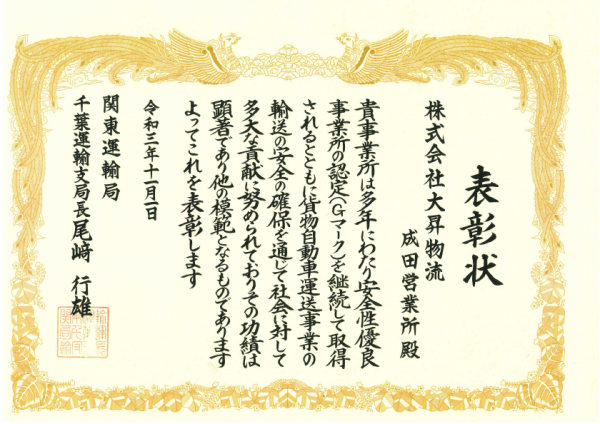 表彰状
株式会社大昇物流
成田営業所殿
貴事業所は多年にわたり安全性優良
事業所の認定(Gマーク)を継続して取得
されるとともに貨物自動車運送事業の
輸送の安全の確保を通じて社会に対して
多大な貢献に努められておりその功績は
顕著であり他の模範となるものであります
よってこれを表彰します
令和三年十一月一日
関東運輸局
千葉運輸支局長尾﨑行雄